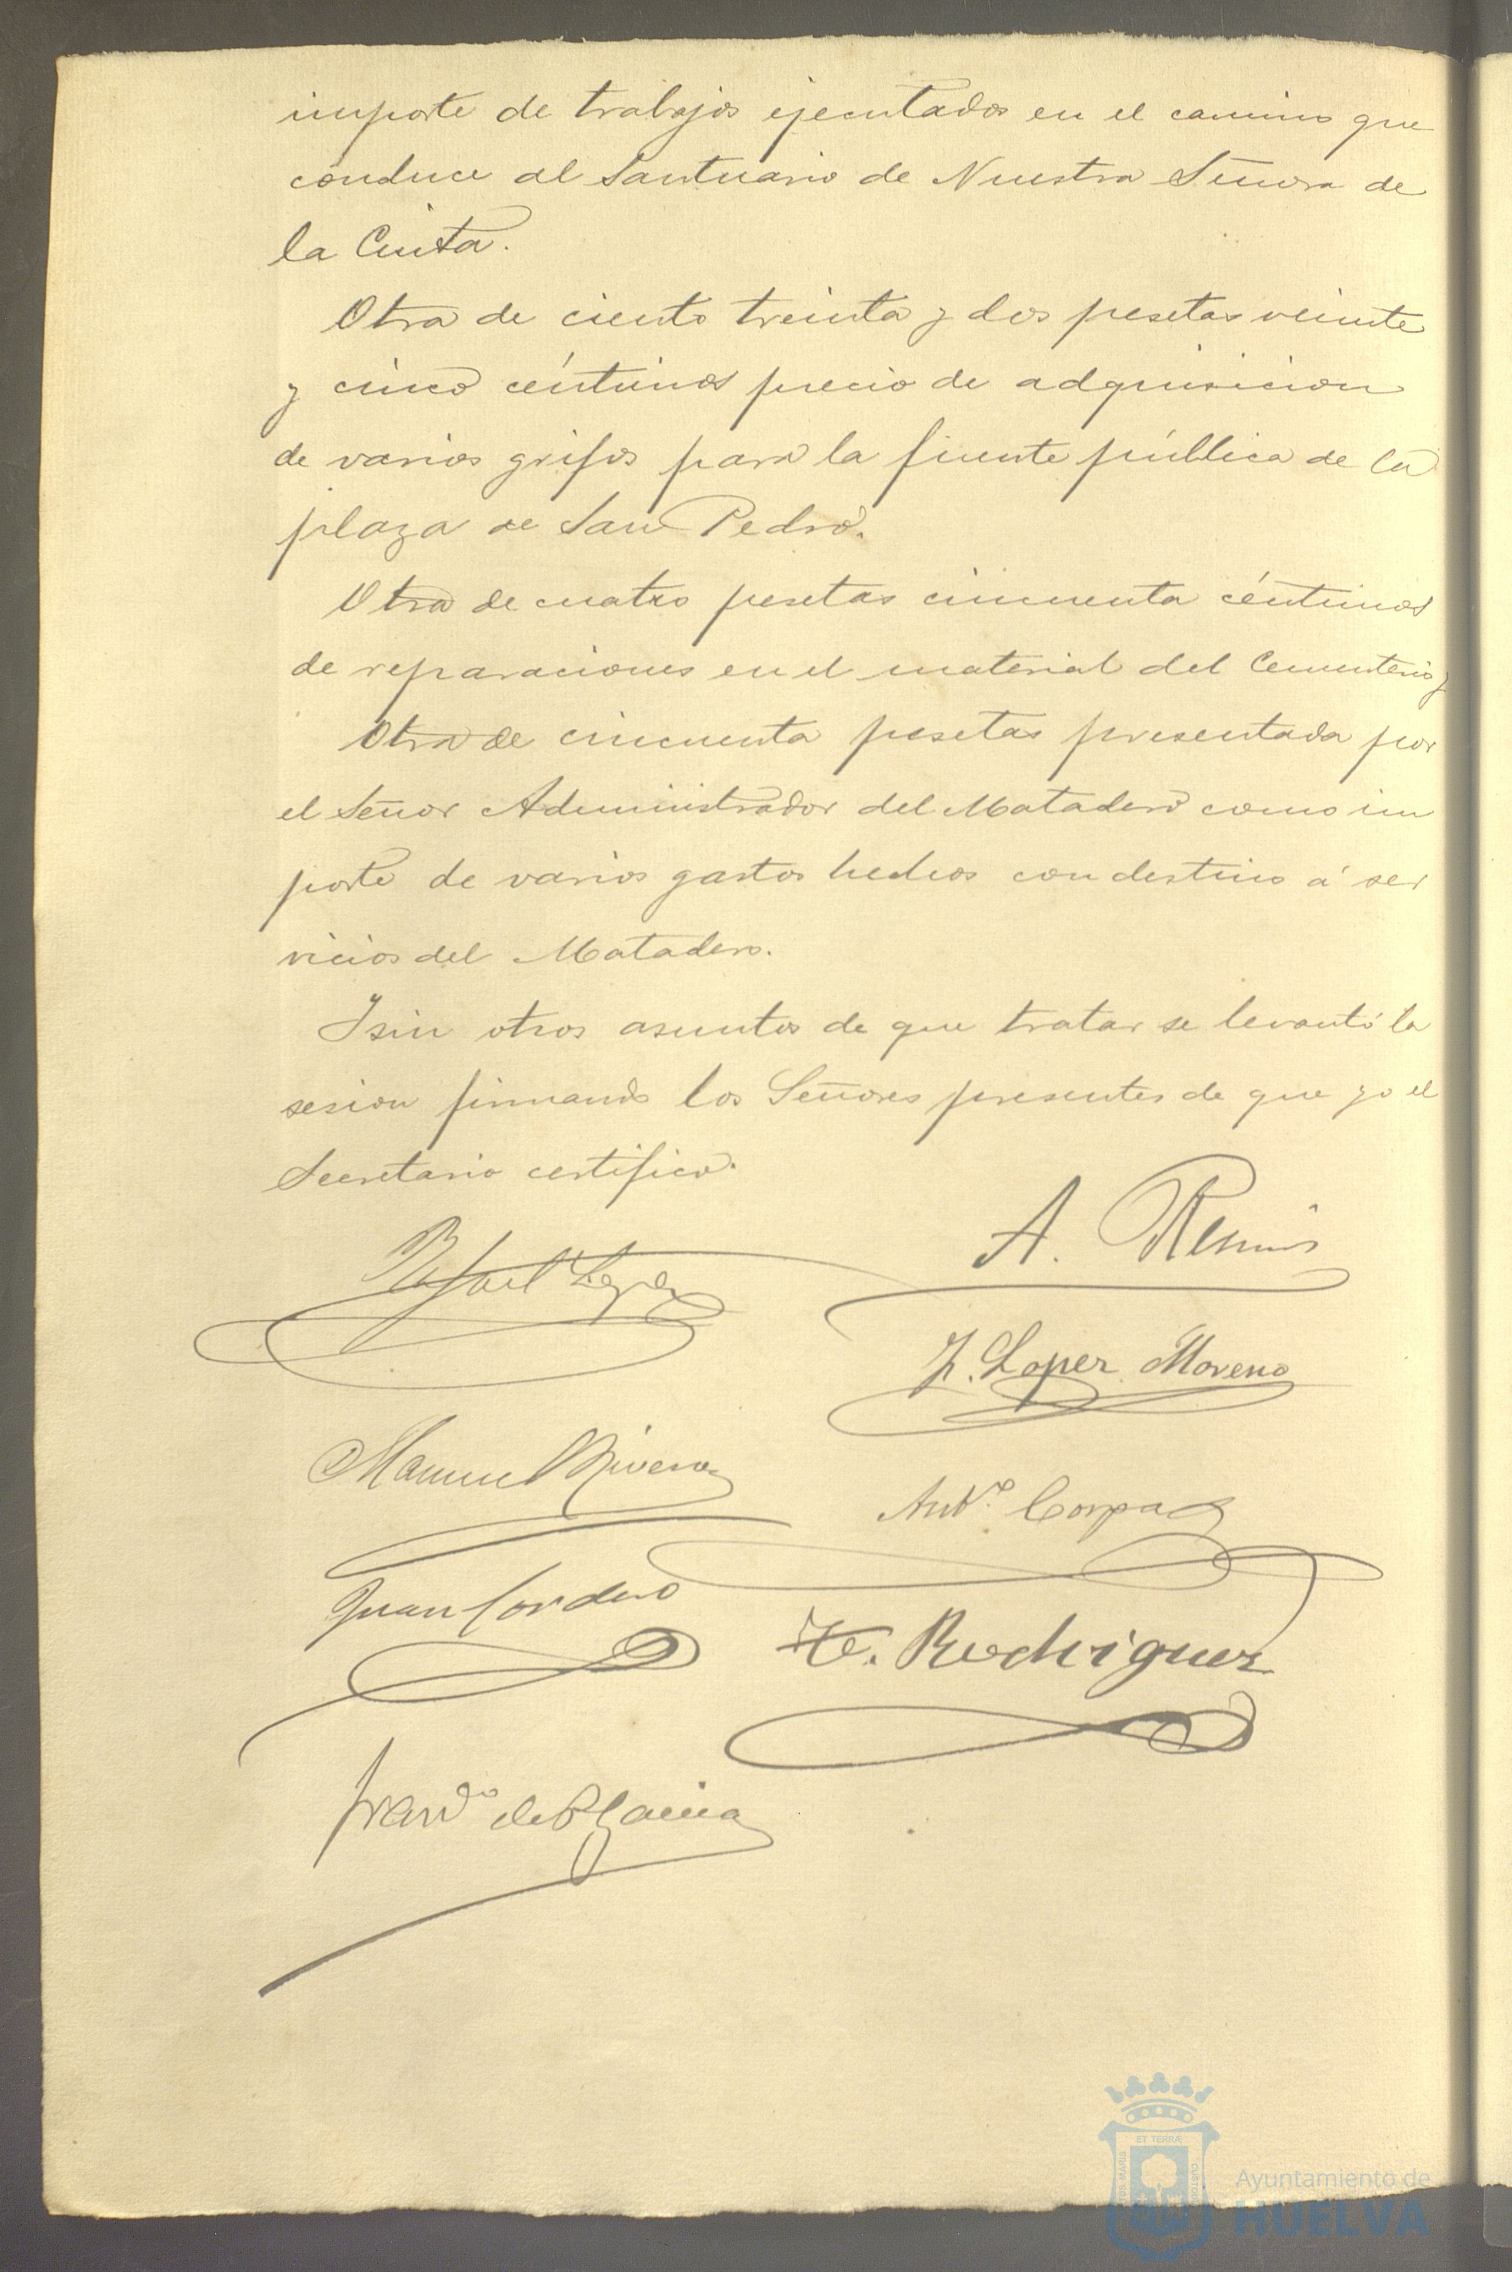 importe de trabajos ejecutados en el camino que
conduce al Santuario de Nuestra Señora de
la Cinta.
Otra de ciento treinta y dos pesetas veinte
y cinco céntimos precio de adquisicion
de varios grifos para la fuente pública de la
plaza de San Pedro.
Otra de cuatro pesetas cincuenta céntimos
de reparaciones en el material del Cementerio y
Otra de cincuenta pesetas presentada por
el Señor Administrador del Matadero como im
porte de varios gastos hechos con destino á ser
vicios del Matadero.
Y sin otros asuntos de que tratar se levantó la
sesion firmando los Señores presentes de que yo el
Secretario certifico.
A.
Rafael Lopez
J. Lopez Moreno
Manuel Rivera
Antº. Corpas
Juan Cordero
Rodriguez
ET TERRÆ
Ayuntamiento de
HUELVA